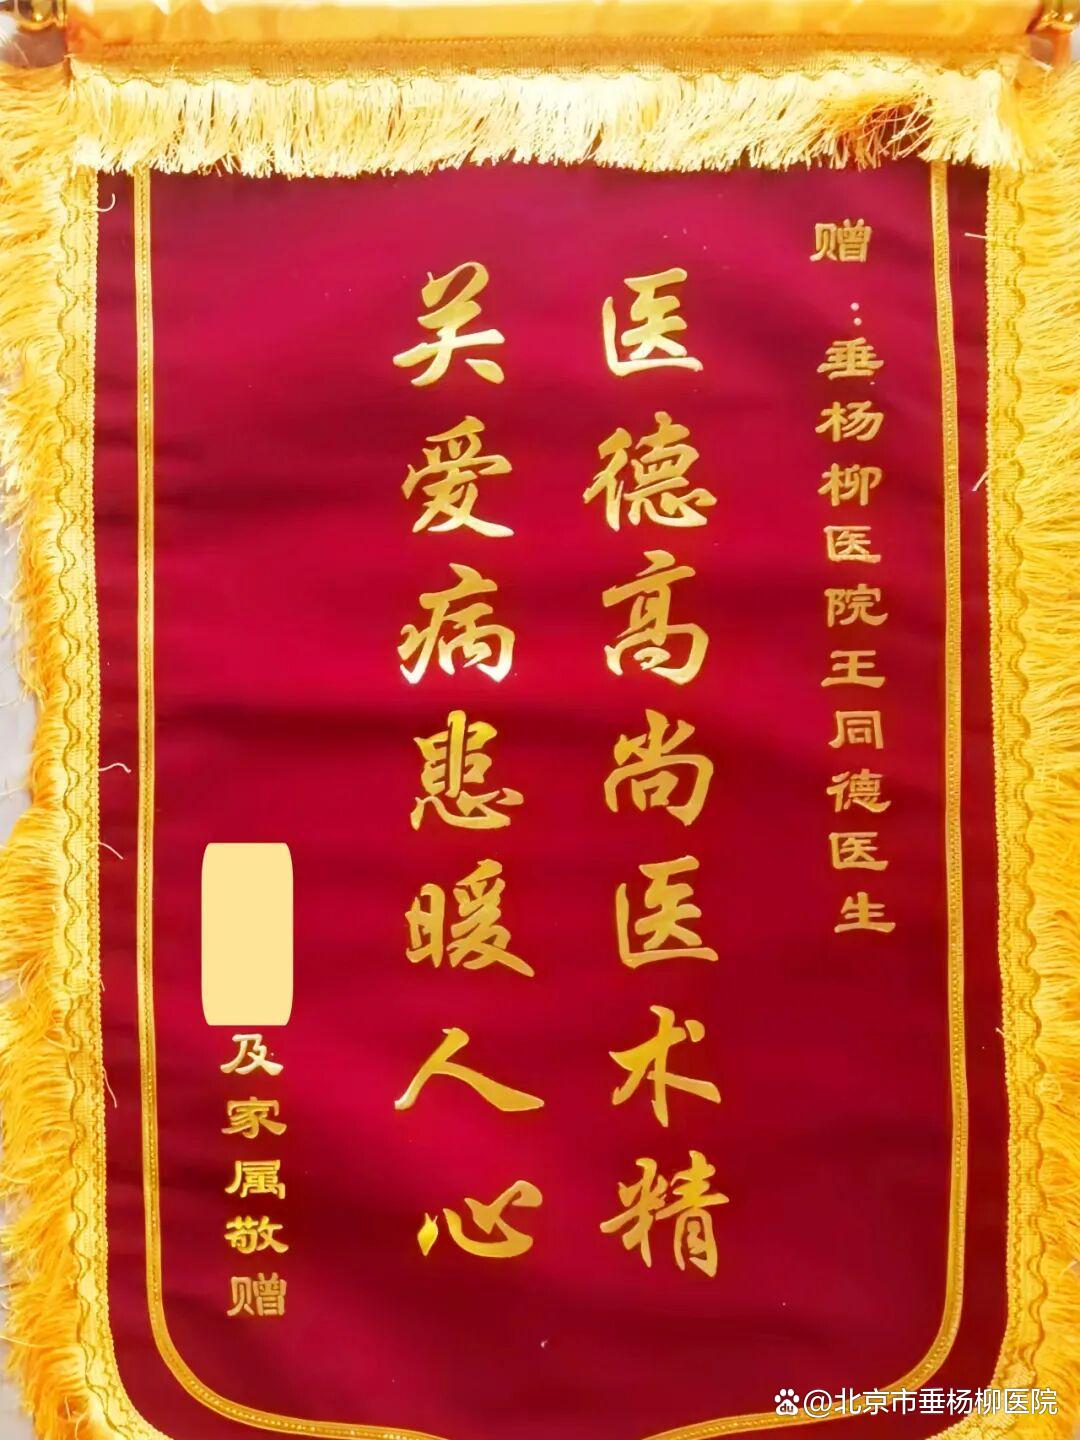 赠：垂杨柳医院王同德医生
医德高尚医术精
关爱病患暖人心
及家属敬赠
@北京市垂杨柳医院